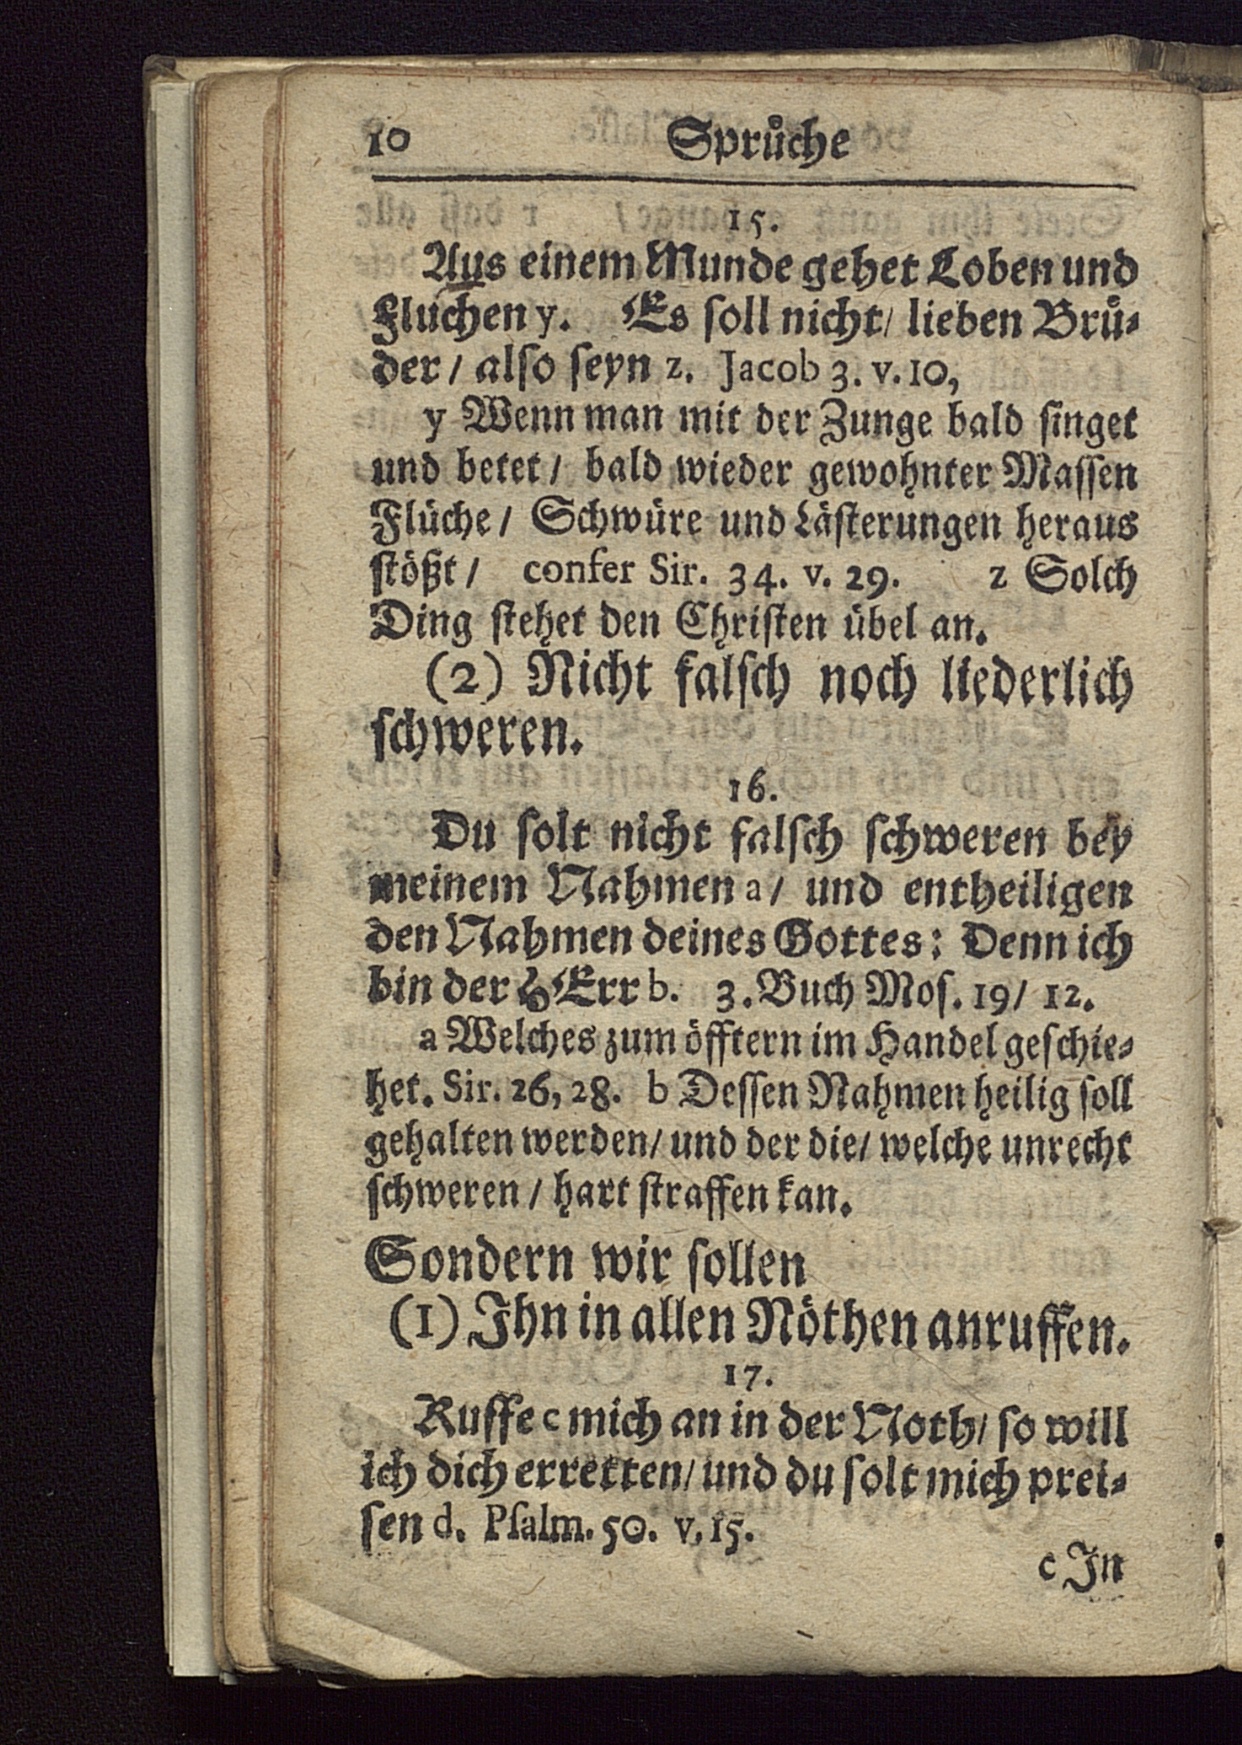 10 Sprüche
15.
Aus einem Munde gehet Loben und
Fluchen y. Es soll nicht/ lieben Brü-
der/ also seyn z. Jacob 3. v. 10,
y Wenn man mit der Zunge bald singet
und betet/ bald wieder gewohnter Massen
Flüche/ Schwüre und Lästerungen heraus
stößt/ confer Sir. 34. v. 29. z Solch
Ding stehet den Christen übel an.
(2) Nicht falsch noch liederlich
schweren.
16.
Du solt nicht falsch schweren bey
meinem Nahmen a/ und entheiligen
den Nahmen deines Gottes: Denn ich
bin der HErr b. 3. Buch Mos. 19/ 12.
a Welches zum öfftern im Handel geschie-
het. Sir. 26, 28. b Dessen Nahmen heilig soll
gehalten werden/ und der die/ welche unrecht
schweren/ hart straffen kan.
Sondern wir sollen
(1) Ihn in allen Nöthen anruffen.
17.
Ruffe c mich an in der Noth/ so will
ich dich erretten/ und du solt mich prei-
sen d. Psalm. 50. v. 15.
c In